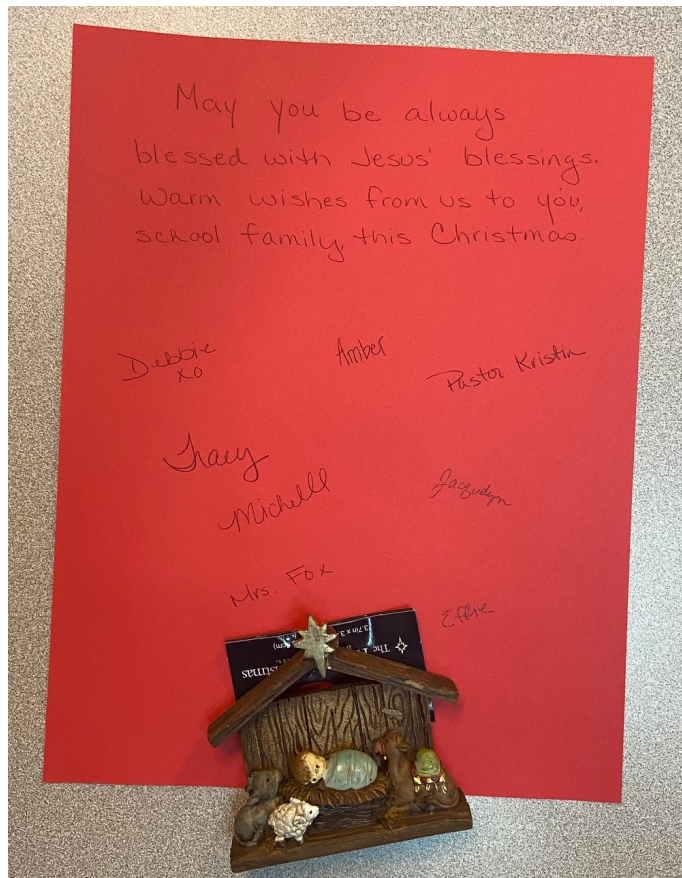 May you be always
blessed with Jesus' blessings.
Warm wishes from us to you,
school family, this Christmas.
Debbie
xo
Amber
Pastor Kristin
Tracy
Michelle
Jacquelyn
Mrs. Fox
Effie
The
3.7in x 3.
cm)